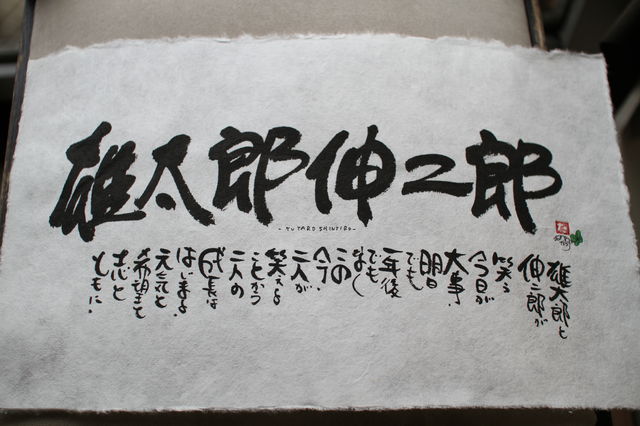 雄太郎伸二郎
- YUTARO SHINJIRO -
雄太郎と
伸二郎が
笑う
今日が
大事、
明日
でも
一年後
でも
なく
この
今、
二人が
笑える
ことから
二人の
成長は
はじまる。
元気と
希望と
志と
ともに。